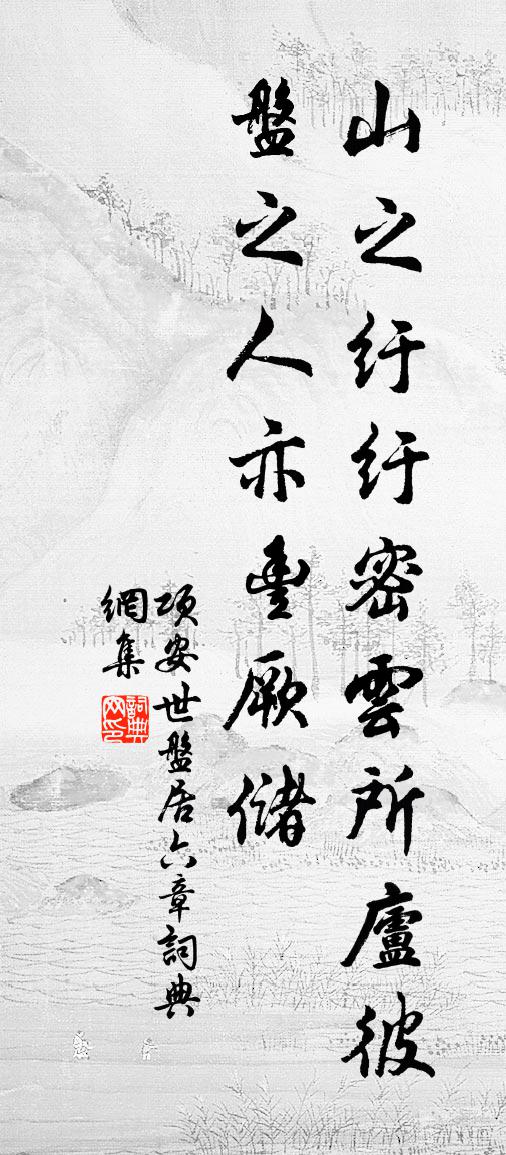 山之紆紆密雲所廬彼
盤之人亦豊厥儲
項安世盤居六章詞典
網集
詞典
网印